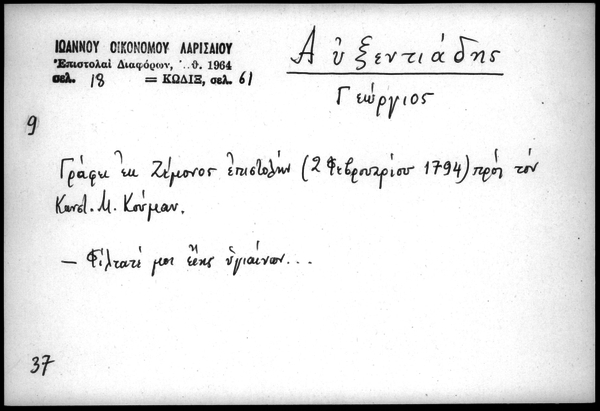 ΙΩΑΝΝΟΥ ΟΙΚΟΝΟΜΟΥ ΛΑΡΙΣΑΙΟΥ
Ἐπιστολαὶ Διαφόρων, ᾿..θ. 1964
σελ. 18 = ΚΩΔΙΞ, σελ. 61
Αὐξεντιάδης
Γεώργιος
9
Γράφει ἐκ Ζέμονος ἐπιστολὴν (2 Φεβρουαρίου 1794) πρὸς τὸν
Κωνστ. Μ. Κούμαν.
— Φίλτατέ μοι εἴης ὑγιαίνων...
37